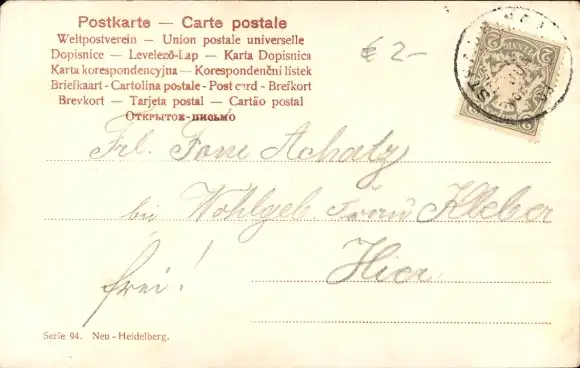 Postkarte — Carte postale
Weltpostverein — Union postale universelle
Dopisnice — Levelező-Lap — Karta Dopisnica
Karta korespondencyjna — Korespondenční lístek
Briefkaart - Cartolina postale - Post card - Brefkort
Brevkort — Tarjeta postal — Cartão postal
Открытое письмо
€ 2-
Frl. Toni Achatz
bei Wohlgeb Frau Kleber
frei! Hier
Serie 94. Neu - Heidelberg.